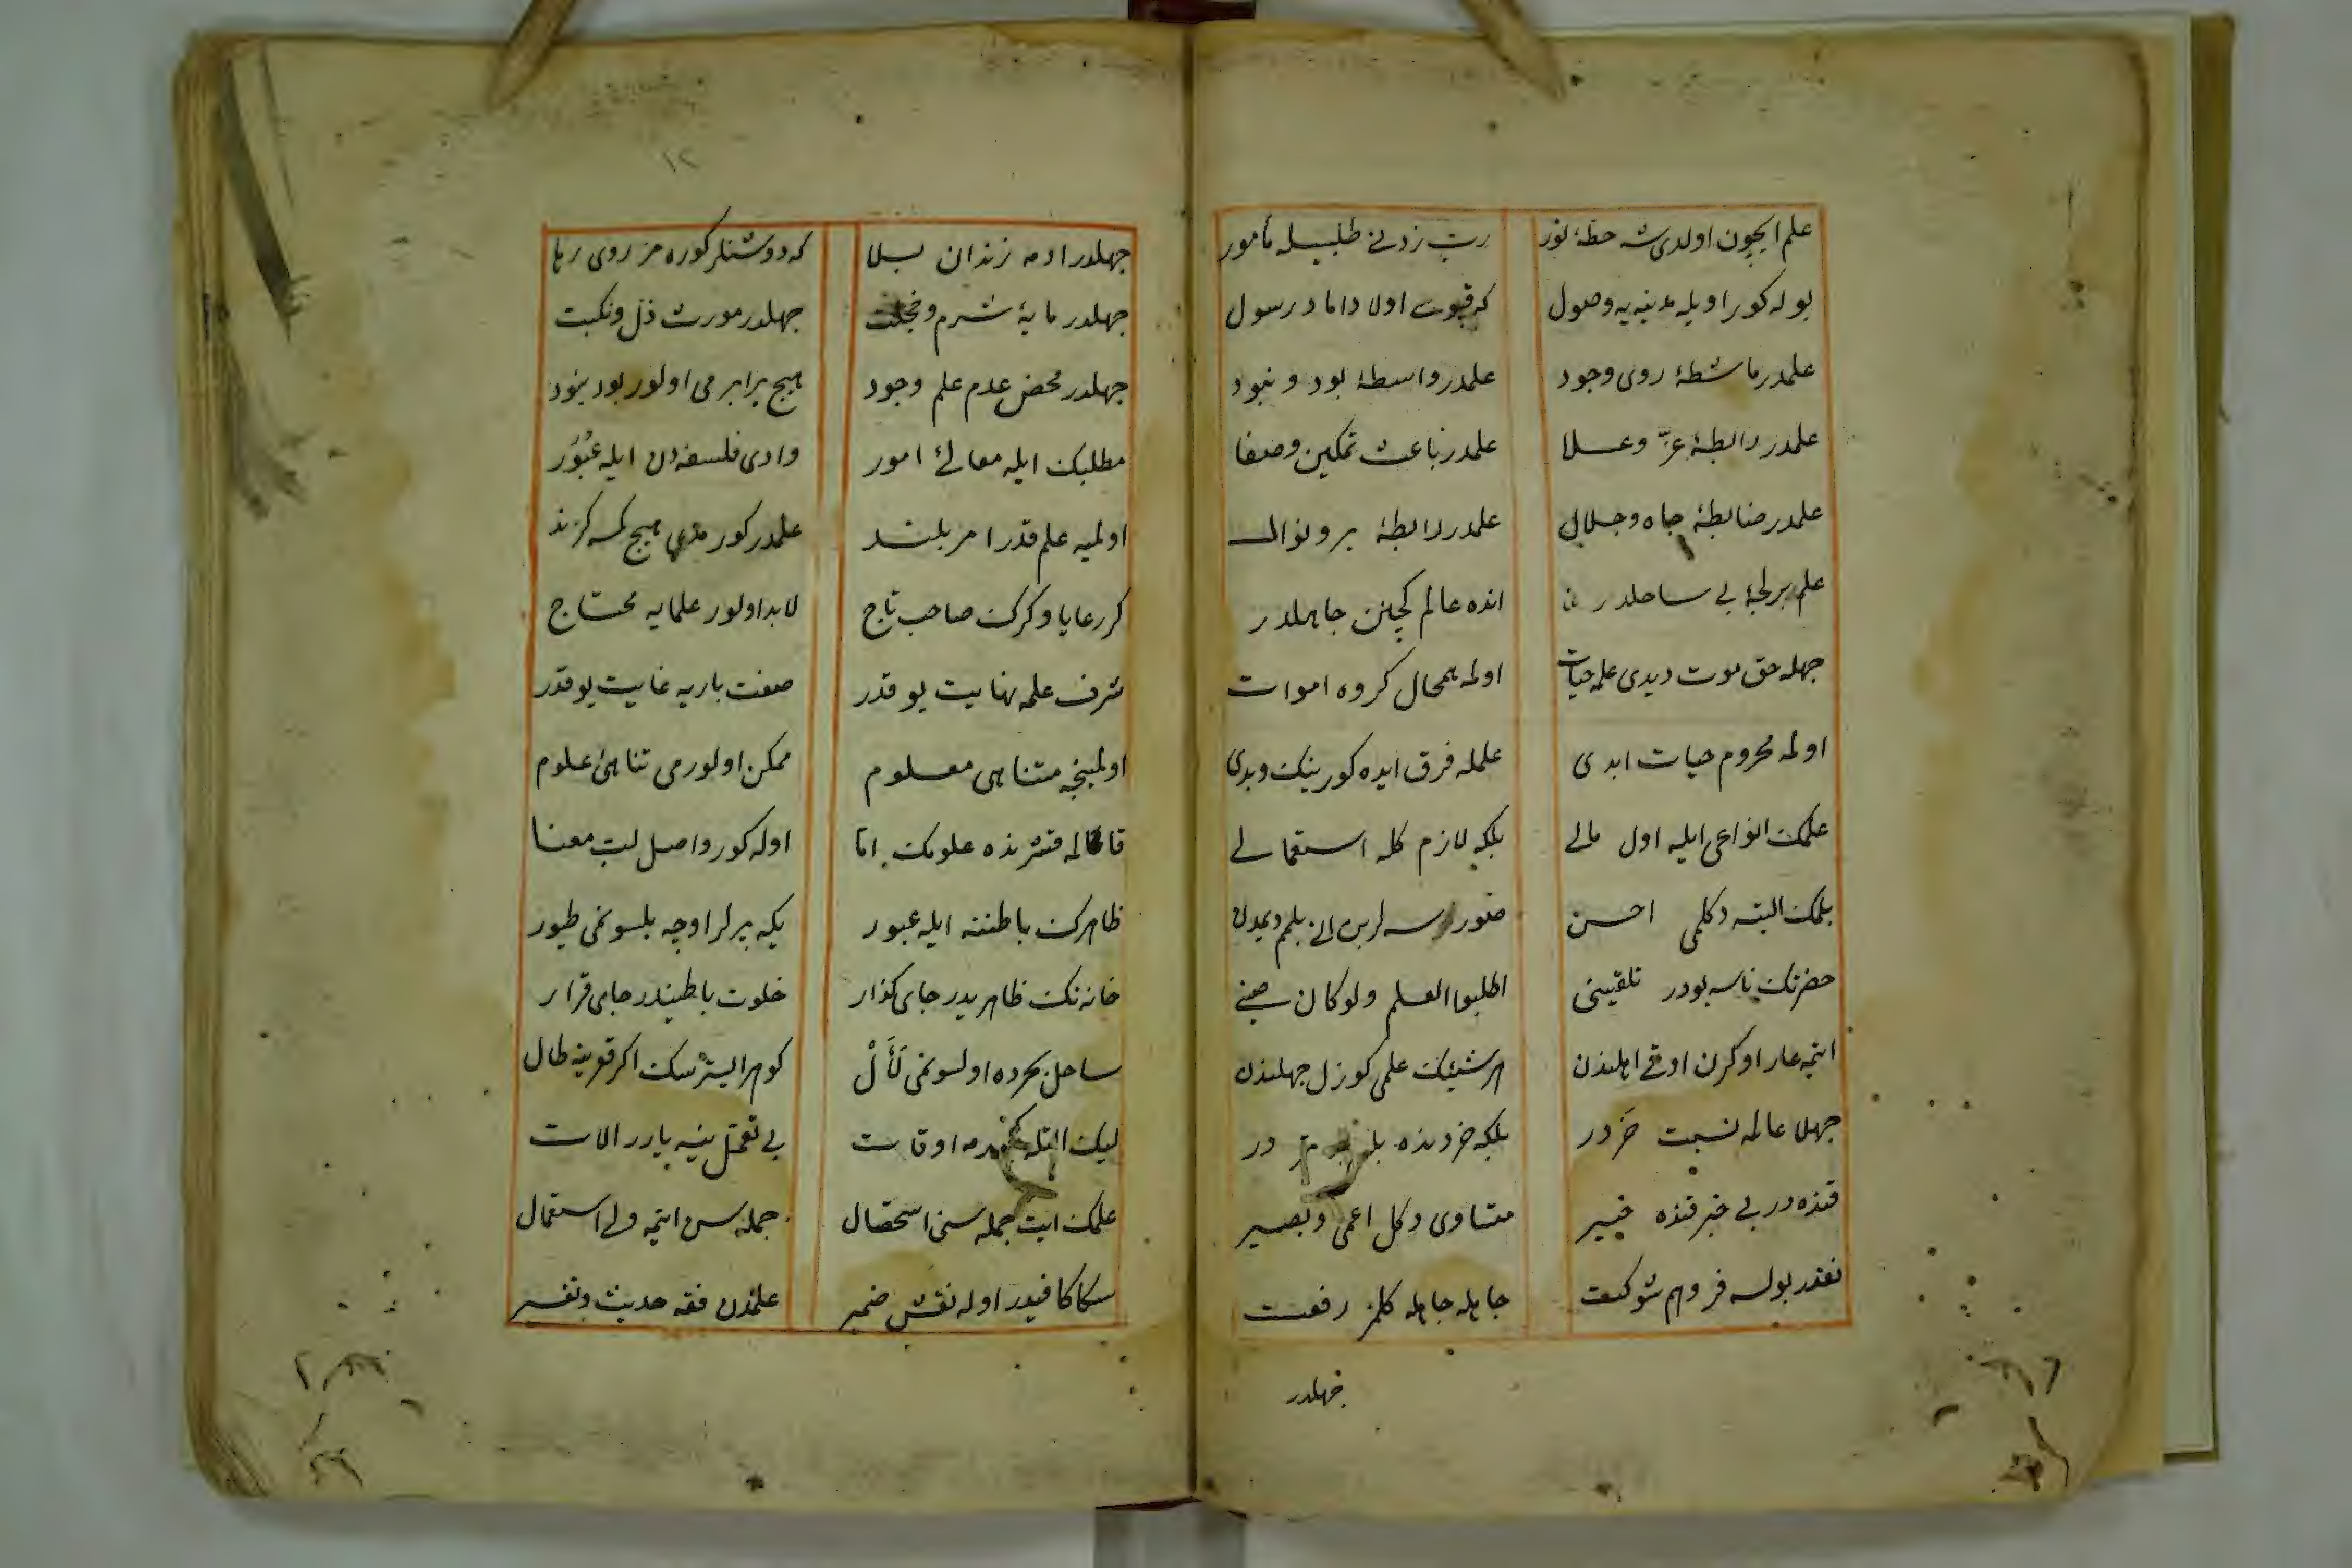 علم ایچون اولدی شه خطهٔ نور
رب زدنی طلبیله مأمور
بوله کور اویله مدینه یه وصول
که قپوسی اولا داماد رسول
علمدر ماشطهٔ روی وجود
علمدر واسطهٔ بود و نبود
علمدر رابطهٔ عزّ وعلا
علمدر باعث تمکین وصفا
علمدر ضابطهٔ جاه وجلال
علمدر رابطهٔ بر ونوال
علم بر لجهٔ بی ساحلدر
انده عالم کچنن جاهلدر
جهله حق موت دیدی علمه حیات
اولمه همحال کروه اموات
اولمه محروم حیات ابدی
علمله فرق ایده کور نیک وبدی
علمک انواعی ایله اول مالی
بلکه لازم کله استعمالی
بلمک البته دکلمی احسن
صورسه لر بن انی بلمم دیمدن
حضرتک ناسه بودر تلقینی
اطلبوا العلم ولو کان صینی
ایتمه عار اوکرن اوقی اهلندن
هر شیئک علمی کوزل جهلندن
جهلا عالمه نسبت خردر
بلکه خر دنده در
قنده در بی خبر قنده خبیر
متساوی دکل اعمی وبصیر
نقدر بولسه فر وهم شوکت
جاهله جاهله کلمز رفعت
جهلدر
۱۲
جهلدر ادمه زندان بلا
که دوشنلر کوره مز روی رها
جهلدر مایهٔ شرم وخجلت
جهلدر مورث ذل ونکبت
جهلدر محض عدم علم وجود
هیچ برابر می اولور بود نبود
مطلبک ایله معالئ امور
وادی فلسفه دن ایله عبور
اولمیه علم قدر امر بلند
علمدر کورمدی هیچ کسه کزند
کر رعایا وکرک صاحب تاج
لابد اولور علمایه محتاج
شرف علمه نهایت یوقدر
صفت باریه غایت یوقدر
اولمینجه متناهی معلوم
ممکن اولورمی تناهئ علوم
قالمه قشرنده علومک اما
اوله کور واصل لب معنا
ظاهرک باطننه ایله عبور
یکه پرلر اوچه بلسونمی طیور
خانه نک ظاهریدر جای کذار
خلوت باطنیدر جای قرار
ساحل بحرده اولسونمی لأل
کوهر ایسترسک اکر قعرینه طال
لیک اوقات
بی تعقل ینیه یارر الات
علمک ایت جمله سنی استحصال
جمله سن ایتمه ولی استعمال
سکا کافیدر اوله نقش ضمیر
علمدن فقه حدیث وتفسیر